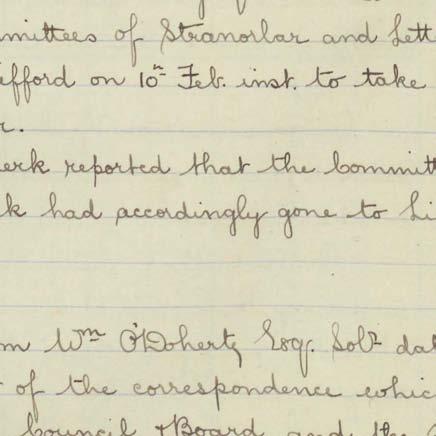 mmittees of Stranorlar and Lett
ifford on 10th Feb. inst. to take
r.
erk reported that the Committ
k had accordingly gone to Li
m Wm O'Doherty Esqr. Solr dat
of the correspondence whic
Council & Board and the